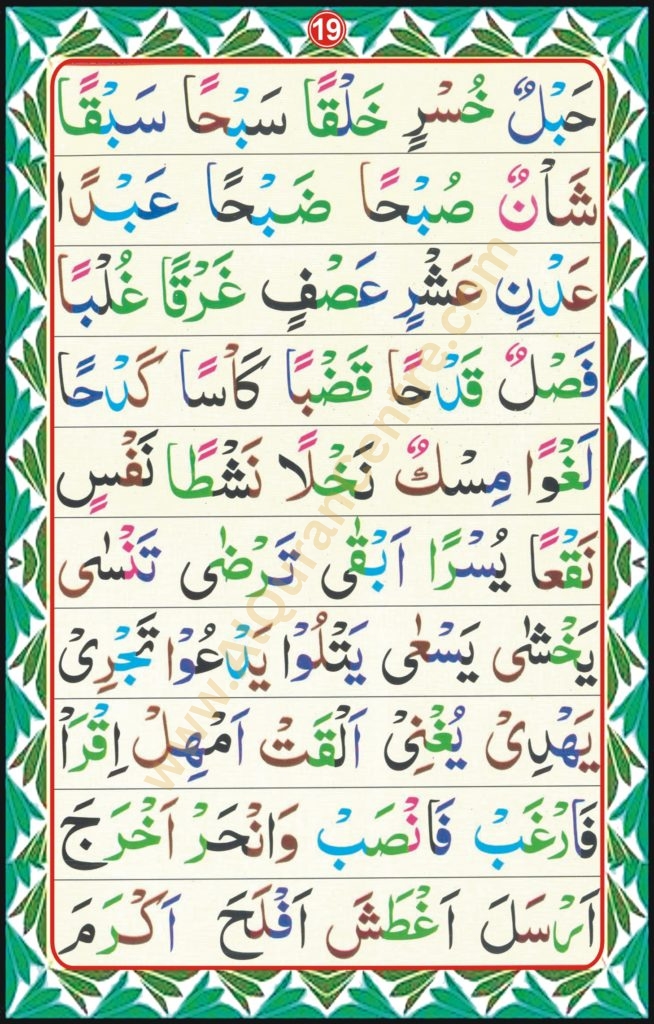 19
حَبْلٌ خُسْرٍ خَلْقًا سَبْحًا سَبْقًا
شَاْنٌ صُبْحًا ضَبْحًا عَبْدًا
عَدْنٍ عَشْرٍ عَصْفٍ غَرْقًا غُلْبًا
فَصْلٌ قَدْحًا قَضْبًا كَاْسًا كَدْحًا
لَغْوًا مِسْكٌ نَخْلًا نَشْطًا نَفْسٍ
نَقْعًا يُسْرًا اَبْقٰى تَرْضٰى تَنْسٰى
يَخْشٰى يَسْعٰى يَتْلُوْا يَدْعُوْا تَجْرِىْ
يَهْدِىْ يُغْنِىْ اَلْقَتْ اَمْهِلْ اِقْرَاْ
فَارْغَبْ فَانْصَبْ وَانْحَرْ اَخْرَجَ
اَرْسَلَ اَغْطَشَ اَفْلَحَ اَكْرَمَ
www.AlQuranCentre.com